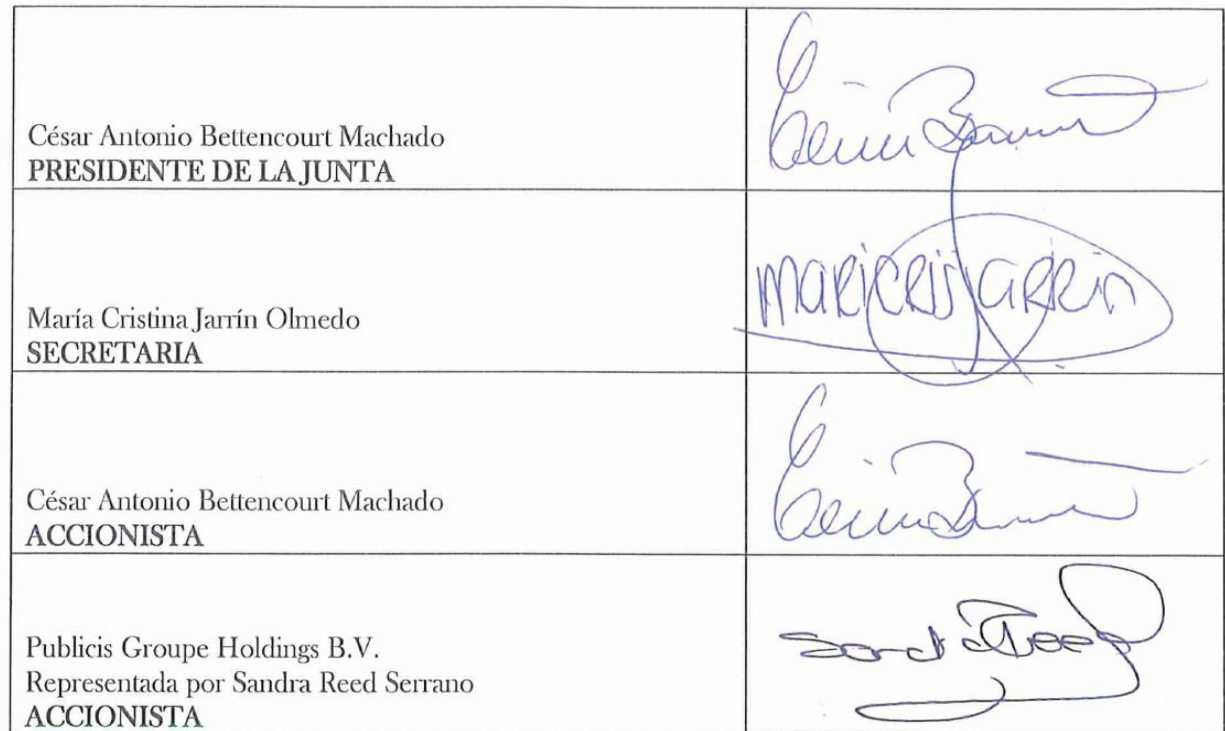 César Antonio Bettencourt Machado
PRESIDENTE DE LA JUNTA
María Cristina Jarrín Olmedo
SECRETARIA
MARICRIS JARRIN
César Antonio Bettencourt Machado
ACCIONISTA
Publicis Groupe Holdings B.V.
Representada por Sandra Reed Serrano
ACCIONISTA
Sandra Reed